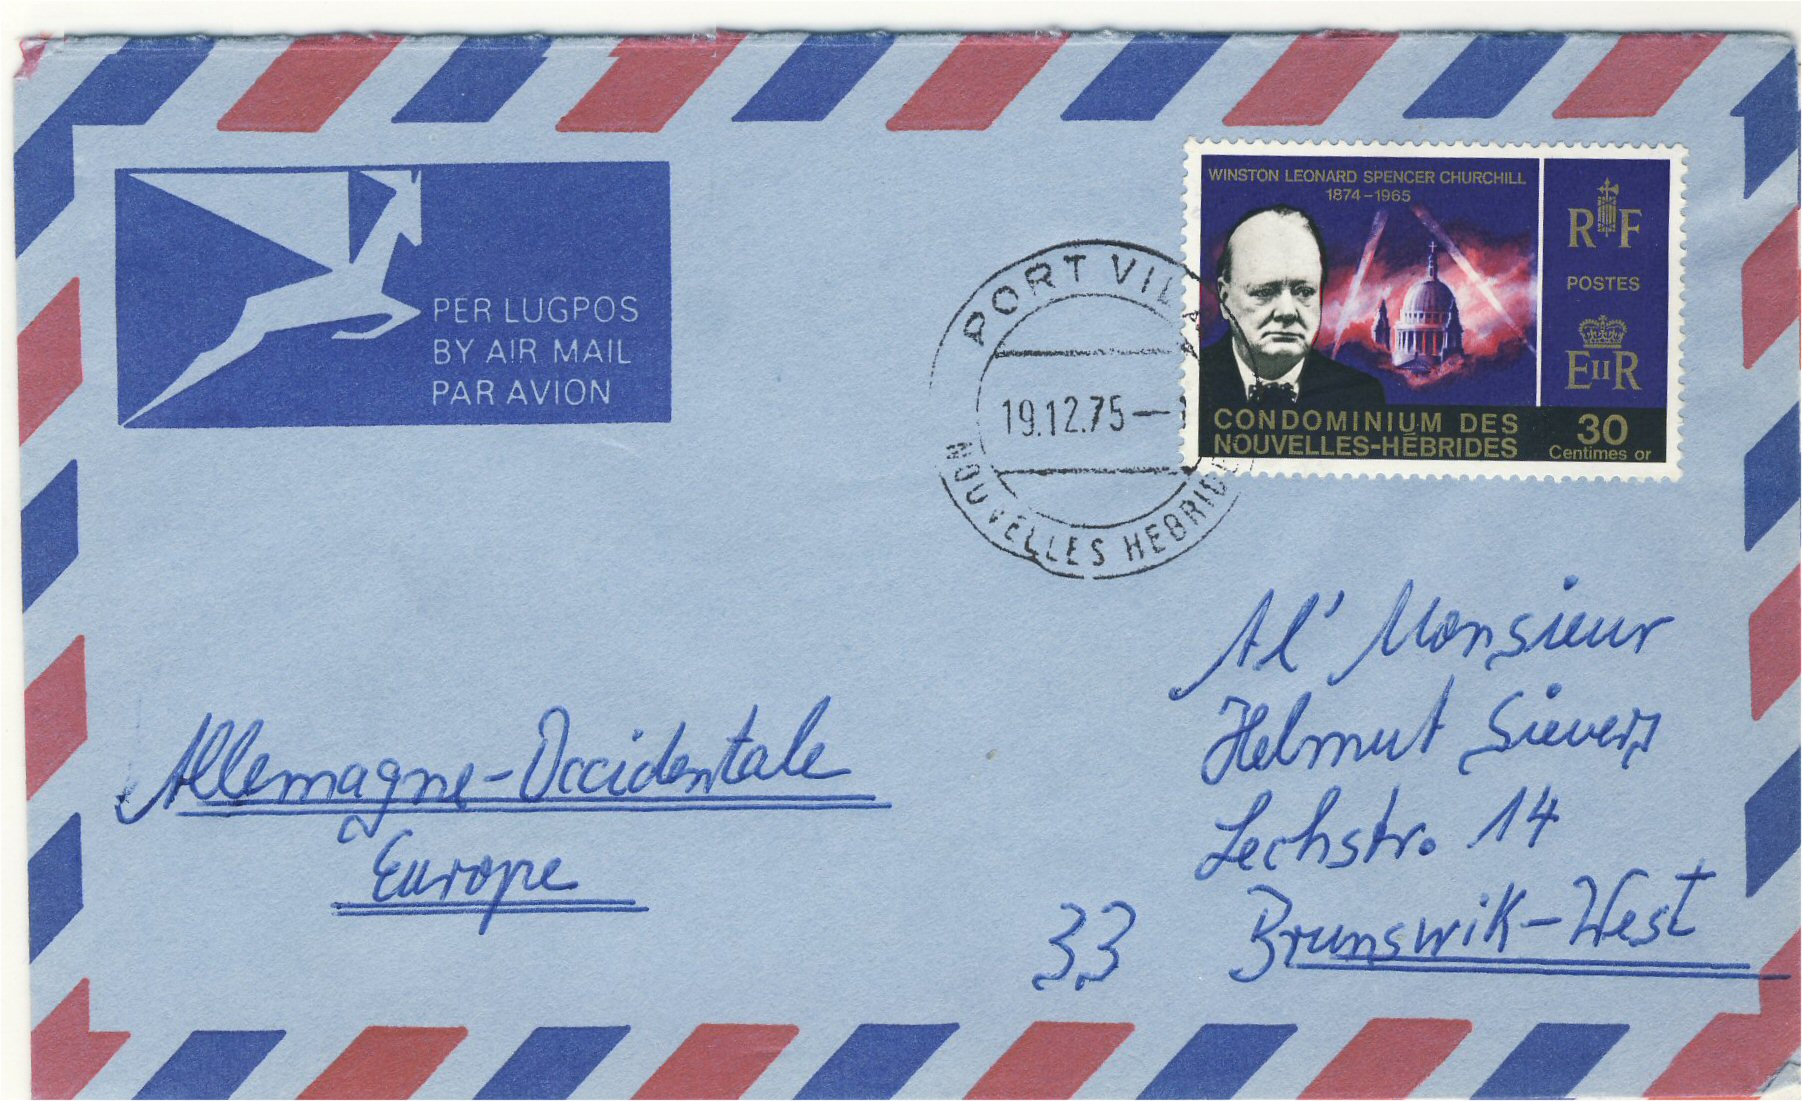 PER LUGPOS
BY AIR MAIL
PAR AVION
PORT VILA
19.12.75—1
NOUVELLES HEBRIDE
WINSTON LEONARD SPENCER CHURCHILL
1874–1965
RF
POSTES
EIIR
CONDOMINIUM DES
NOUVELLES-HÉBRIDES
30
Centimes or
Al' Monsieur
Helmut Sievers
Lechstr. 14
33 Brunswik-West
Allemagne-Occidentale
Europe